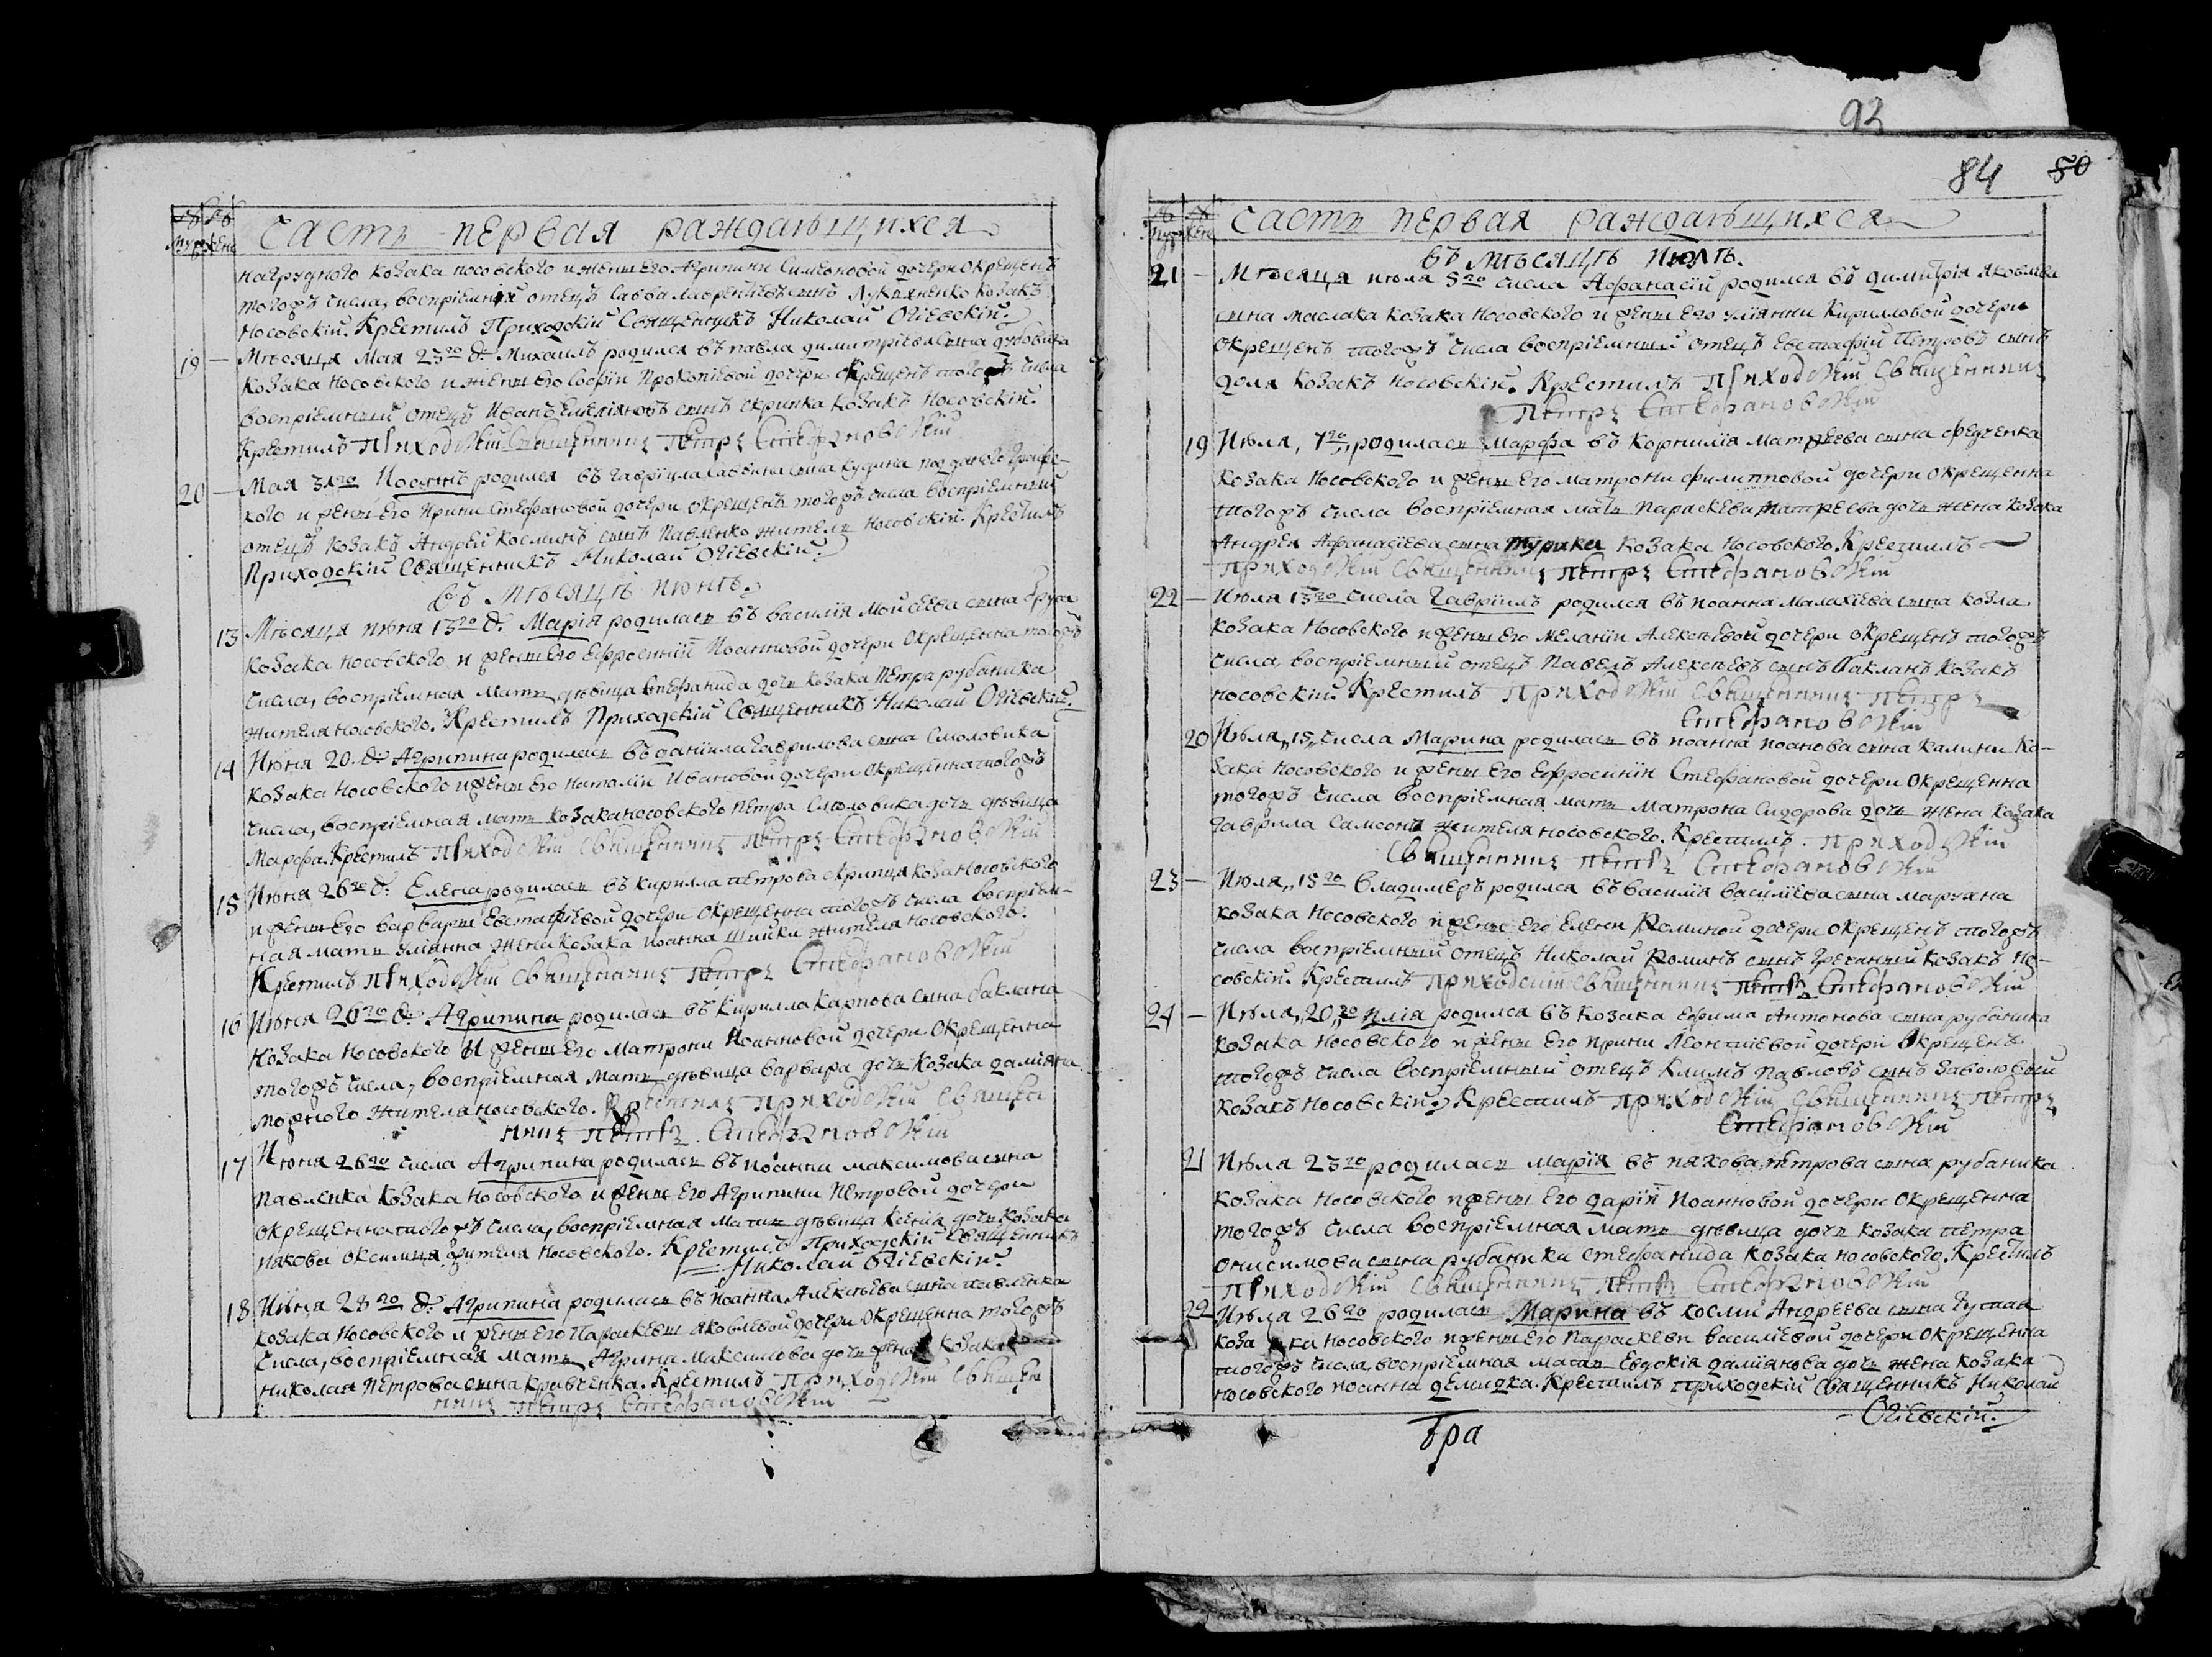 № №
Муж Жен
Часть первая раждающихся
нагрудного козака носовского и жены его Агрипини Симеоновой дочери окрещенъ
тогожъ числа, воспріемний отецъ Савва Лаврентіевъ сынъ Лукяненко козакъ
Носовскій. Крестилъ Приходскій Священникъ Николай Огіевскій.
19 — Мѣсяця Мая 23го д. Михаилъ родился въ Павла Димитріева сына
козака носовского и жены его Софіи Прокопіевой дочери окрещенъ тогожъ числа
воспріемный отецъ Иванъ Емеліяновъ сынъ Скрипка козакъ Носовскій.
Крестилъ Приходскій Священникъ Петръ Стефановскій
20 — Мая 31го Иоаннъ родился въ Гавріила Саввина сына Кудина подданого Графс-
кого и жены его Ирини Стефановой дочери окрещенъ тогожъ числа воспріемный
отецъ козакъ Андрей Косминъ сынъ Павленко жителъ Носовскій. Крестилъ
Приходскій Священникъ Николай Огіевскій.
Въ Мѣсяцѣ Июнѣ.
13 Мѣсяця июня 13го д. Марія родилась въ Василія Мойсеева сына
козака Носовского и жены его Ефросиніи Иоанновой дочери окрещенна тогожъ
числа, воспріемная мать дѣвица Стефанида дочь козака Петра Рубаника
жителя носовского. Крестилъ Приходскій Священникъ Николай Огіевскій.
14 Июня 20. д. Агрипина родилась въ Даніила Гаврилова сына Смоловика
козака Носовского и жены его Наталіи Ивановой дочери окрещенна тогожъ
числа, воспріемная мать козака носовского Петра Смоловика дочь дѣвица
Марфа. Крестилъ Приходскій Священникъ Петръ Стефановскій
15 Июня 26го д. Елена родилась въ Кирилла Петрова Скрипця коза Носовского
и жены его Варвары Евстафіевой дочери окрещенна тогожъ числа воспріем-
ная мать Уліянна жена козака Иоанна Шийки жителя Носовского.
Крестилъ Приходскій Священникъ Петръ Стефановскій
16 Июня 26го д. Агрипина родилась въ Кирилла Карпова сына Баклана
козака Носовского и жены его Матрони Иоанновой дочери окрещенна
тогожъ числа, воспріемная мать дѣвица Варвара дочь козака Даміяна
жителя носовского. Крестилъ Приходскій Священ
никъ Петръ Стефановскій
17 Июня 26го числа Агрипина родилась въ Иоанна Максимова сына
Павленка козака Носовского и жены его Агрипини Петровой дочери
окрещенна тогожъ числа, воспріемная мати дѣвица Ксенія дочь козака
Иякова жителя Носовского. Крестилъ Приходскій Священникъ
Николай Огіевскій.
18 Июня 28го д. Агрипина родилась въ Иоанна Алексѣева сына Павленка
козака Носовского и жены его Параскевы Яковлевой дочери окрещенна тогожъ
числа, воспріемная мать Агрина Максимова дочь жена козака
Николая Петрова сына Кравченка. Крестилъ Приходскій Священ
никъ Петръ Стефановскій
92
84 80
№ №
Муж Жен
Часть первая раждающихся
Въ Мѣсяцѣ Июлѣ.
21 — Мѣсяця июля 5го числа Афанасій родился въ Димитрія Яковлева
сына Маслака козака Носовского и жены его Уліянни Кирилловой дочери
окрещенъ тогожъ числа воспріемный отецъ Евстафій Петровъ сынъ
Доля козакъ Носовскій. Крестилъ Приходскій Священникъ
Петръ Стефановскій
19 Июля, 7го, родилась Марфа въ Корнилія Матфеева сына Федченка
козака Носовского и жены его Матрони Филипповой дочери окрещенна
тогожъ числа воспріемная мать Параскева Матфеева дочь жена козака
Андрея Афанасіева сына Турика козака Носовского. Крестилъ
Приходскій Священникъ Петръ Стефановскій
22 — Июля 13го числа Гавріилъ родился въ Иоанна Малахіева сына Козла
козака Носовского и жены его Меланіи Алексѣевой дочери окрещенъ тогожъ
числа, воспріемный отецъ Павелъ Алексѣевъ сынъ Бакланъ козакъ
носовскій. Крестилъ Приходскій Священникъ Петръ
Стефановскій
20 Июля, 15, числа Марина родилась въ Иоанна Иоанова сына Калини ко-
зака Носовского и жены его Ефросиніи Стефановой дочери окрещенна
тогожъ числа воспріемная мать Матрона Сидорова дочь жена козака
Гаврила Самсона жителя носовского. Крестилъ Приходскій
Священникъ Петръ Стефановскій
23 — Июля, 15го Владимеръ родился въ Василія Василіева сына Марухна
козака Носовского и жены его Елени Фоминой дочери окрещенъ тогожъ
числа воспріемный отецъ Николай Фоминъ сынъ Гречаний козакъ но-
совскій. Крестилъ Приходскій Священникъ Петръ Стефановскій
24 — Июля, 20, го Илія родился въ козака Ефима Антонова сына Рубаника
козака Носовского и жены его Ирини Леонтіевой дочери окрещенъ
тогожъ числа воспріемный отецъ Климъ Павловъ сынъ Заволовій
козакъ Носовскій. Крестилъ Приходскій Священникъ Петръ
Стефановскій
21 Июля 23го родилась Марія въ Иякова Петрова сына Рубаника
козака Носовского и жены его Даріи Иоанновой дочери окрещенна
тогожъ числа воспріемная мать дѣвица дочь козака Петра
Онисимова сына Рубаника Стефанида козака носовского. Крестилъ
Приходскій Священникъ Петръ Стефановскій
22 Июля 26го родилась Марина въ Косми Андреева сына
коза ка носовского и жены его Параскеви Василіевой дочери окрещенна
тогожъ числа, воспріемная мать Евдокія Даміянова дочь жена козака
носовского Иоанна Демидка. Крестилъ Приходскій Священникъ Николай
Огіевскій.
Гра